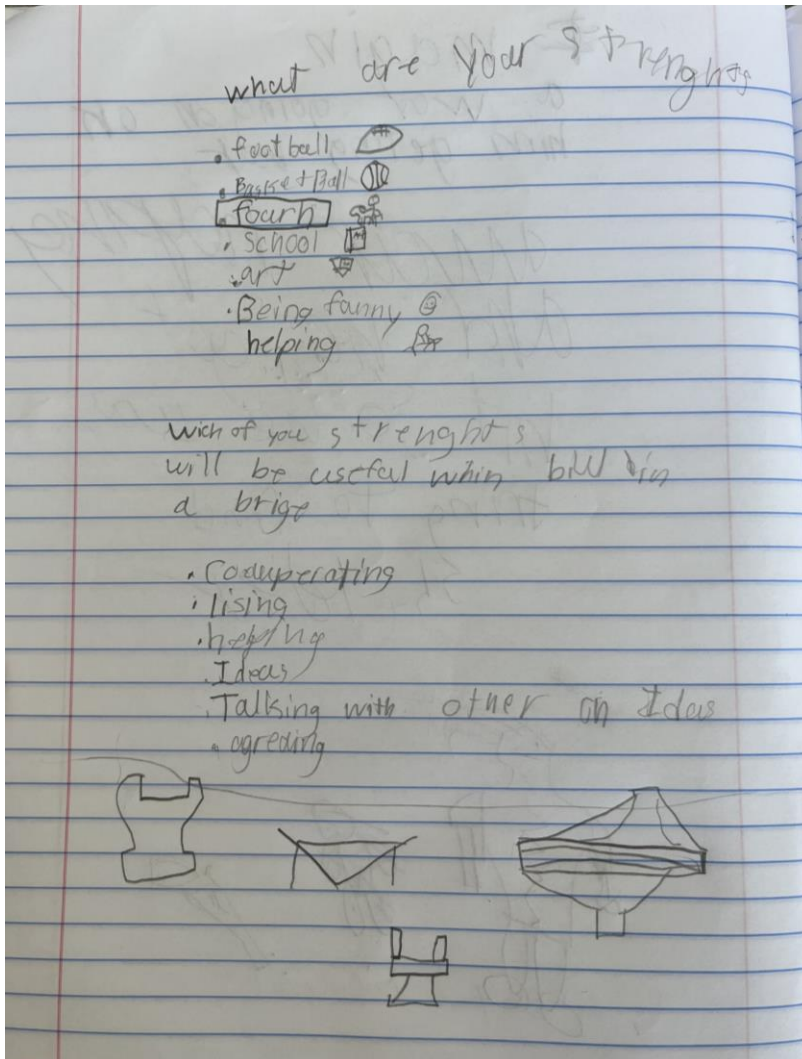 what are your strenghts
. football
. BasketBall
. fourh
. school
. art
. Being funny
helping
wich of you strenghts
will be useful whin bill din
a brige
. Coouperating
. lising
. helping
. Ideas
. Talking with other on Idas
. agreeing